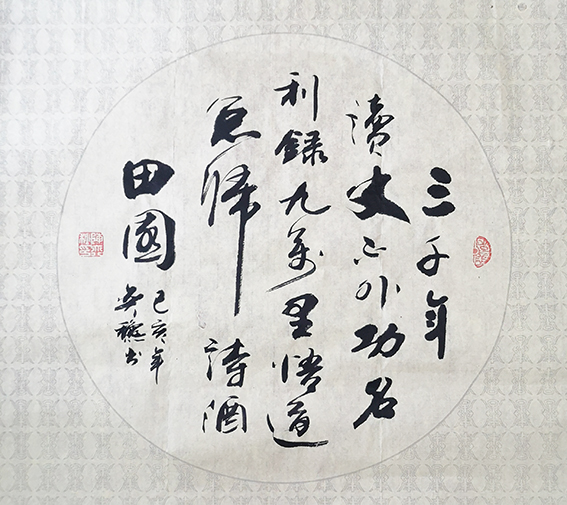 三千年
讀史不外功名
利録九萬里悟道
总歸詩酒
田園
己亥年